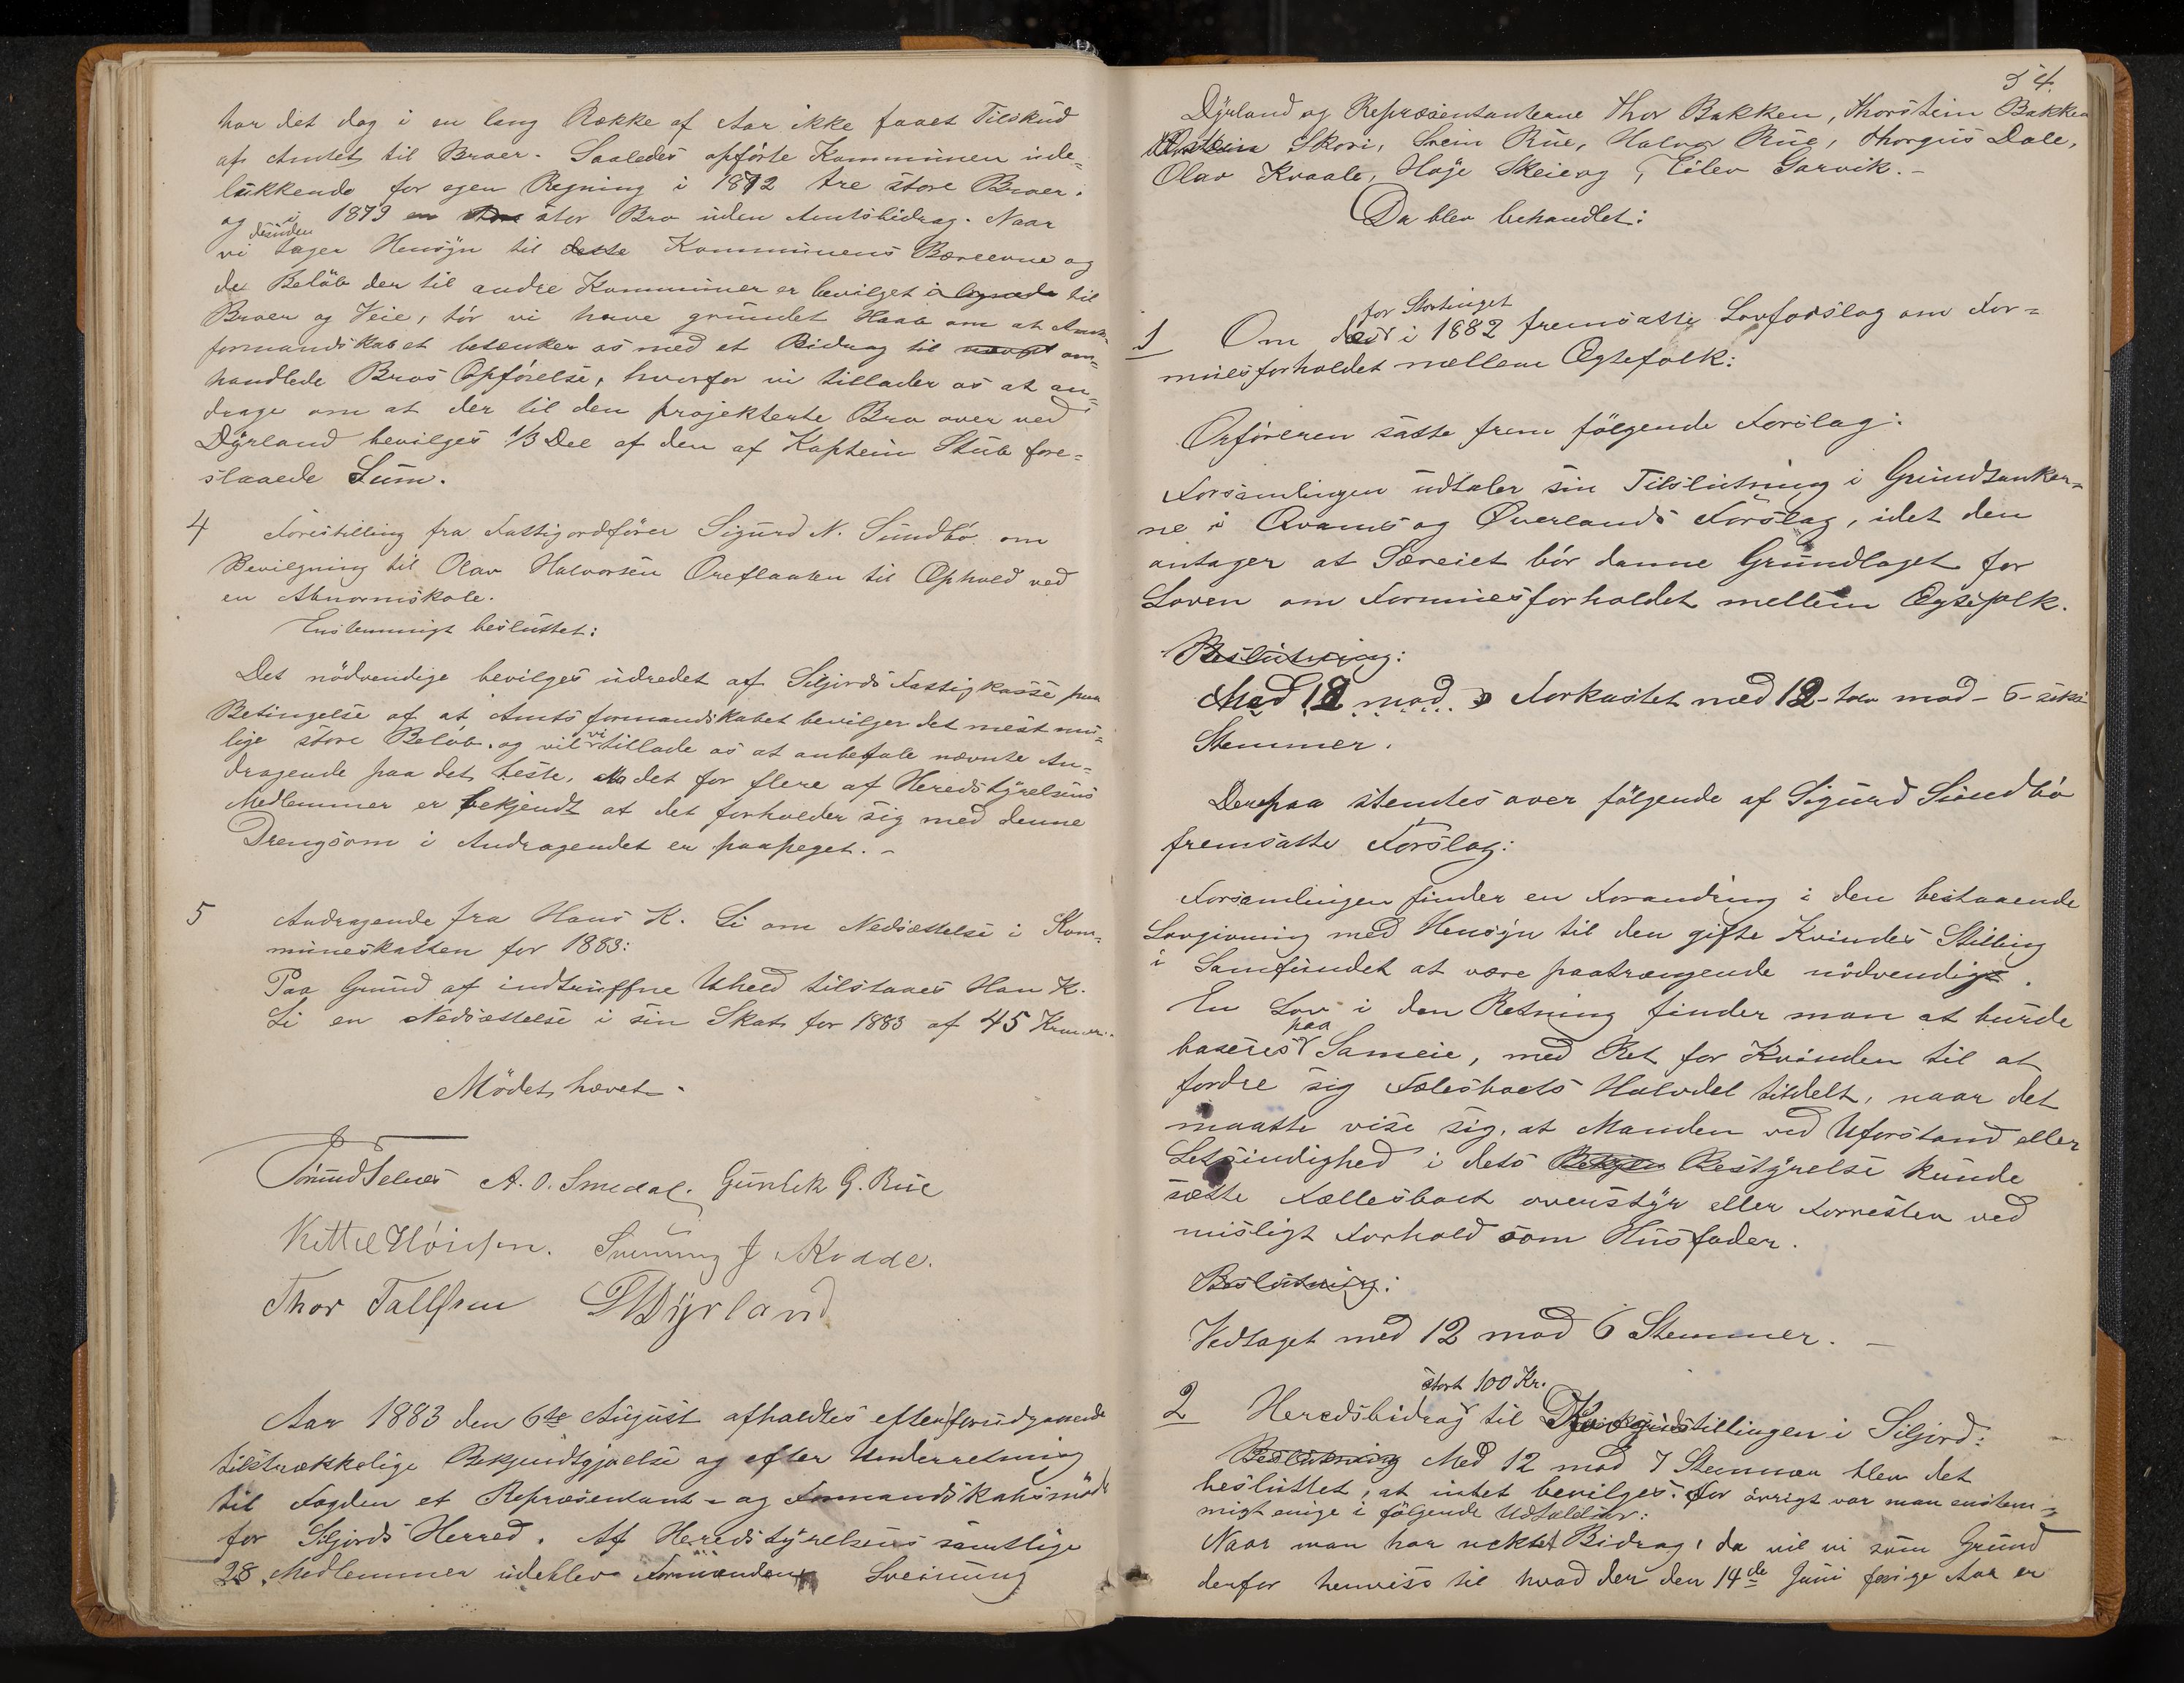 har det dog i en lang Række af Aar ikke faaet Tilskud
af Amtet til Broer. Saaledes opførte Kommunen ude-
lukkende for egen Regning i 1872 tre store Broer.
og desuden i 1879 en stor Bro uden Amtsbidrag. Naar
vi tager Hensyn til dette Kommunens Bæreevne og
de Beløb der til andre Kommuner er bevilget i lignede til
Broer og Veie, tør vi have grundet Haab om at Amts-
formandskabet betænker os med et Bidrag til nævnt om-
handlede Bros Opførelse, hvorfor vi tillader os at an-
drage om at der til den projekterte Bro over ved
Dyrland bevilges 1/3 Del af den af Kaptein Stub fore-
slaaede Sum.
4 Forestilling fra Fattigordfører Sigurd N. Sundbø om
Bevilgning til Olav Halvorsen Oreflaaten til Ophold ved
en Abnormskole.
Enstemmigt besluttet:
Det nødvendige bevilges udredet af Siljords Fattigkasse paa
Betingelse af at Amtsformandskabet bevilger det mest mu-
lige store Beløb. og vil vi tillade os at anbefale nævnte An-
dragende paa det beste, da det for flere af Heredstyrelsens
Medlemmer er bekjendt at det forholder sig med denne
Dreng som i Andragendet er paapeget. -
5 Andragende fra Hans K. Li om Nedsættelse i Kom-
muneskatten for 1883:
Paa Grund af indtruffne Uheld tilstaaes Han K.
Li en Nedsættelse i sin Skat for 1883 af 45 Kroner.
Mødet hævet. -
Tømmod Selnes A. O. Smedal. Gunlek G. Rue
Kittil Høiesen. Sveinung J Kodde.
Thor Tallefsen Dyrland
Aar 1883 den 6te August afholdtes efter forudgaaende
tilstrækkelige Bekjendtgjørelse og efter Underretning
til Fogden et Repræsentant- og Formandskabsmøde
for Siljords Herred. Af Heredstyrelsens samtlige
28 Medlemmer udeblev Formænden Sveinung
54.
Dyrland og Repræsentanterne Thor Bakken, Thorstein Bakken
Skori, Svein Rue, Halvor Rue, Thorgus Dale,
Olav Kvaale, Høje Skeie og Eilev Garvik. -
Da blev behandlet:
for Stortinget
1 Om det i 1882 fremsatte Lovforslag om For-
muesforholdet mellem Ægtefolk:
Orføreren satte frem følgende Forslag:
Forsamlingen udtaler sin Tilslutning i Grundtanker-
ne i Qvams og Øverlands Forslag, idet den
antager at Særeiet bør danne Grundlaget for
Loven om Formuesforholdet mellem Ægtefolk.
Beslutning:
Med 12 mod Forkastet med 12 - tolv mod - 6 - seks
Stemmer.
Derepaa stemtes over følgende af Sigurd Sundbø
fremsatte Forslag:
Forsamlingen finder en Forandring i den bestaaende
Lovgivning med Hensyn til den gifte Kvindes Stilling
i Samfundet at være paatrængende nødvendigt.
En Lov i den Retning finder man at burde
baseres paa Sameie, med Ret for Kvinden til at
fordre sig Fælesboets Halvdel tildelt, naar det
maatte vise sig, at Manden ved Uforstand eller
Letsindighed i dets Bestyrelse kunde
sætte Fællesboet overstyr eller Forresten ved
misligt Forhold som Husfader.
Beslutning:
Vedtaget med 12 mod 6 Stemmer. -
stort 100 Kr.
2 Heredsbidrag til stillingen i Siljord:
Beslutning Med 12 mod 7 Stemmer blev det
besluttet, at intet bevilges. for øvrigt var man enstem-
migt enige i følgende Udtalelser:
Naar man har nektet Bidrag, da vil vi som Grund
derfor henvise til hvad der den 14de Juni forige Aar er